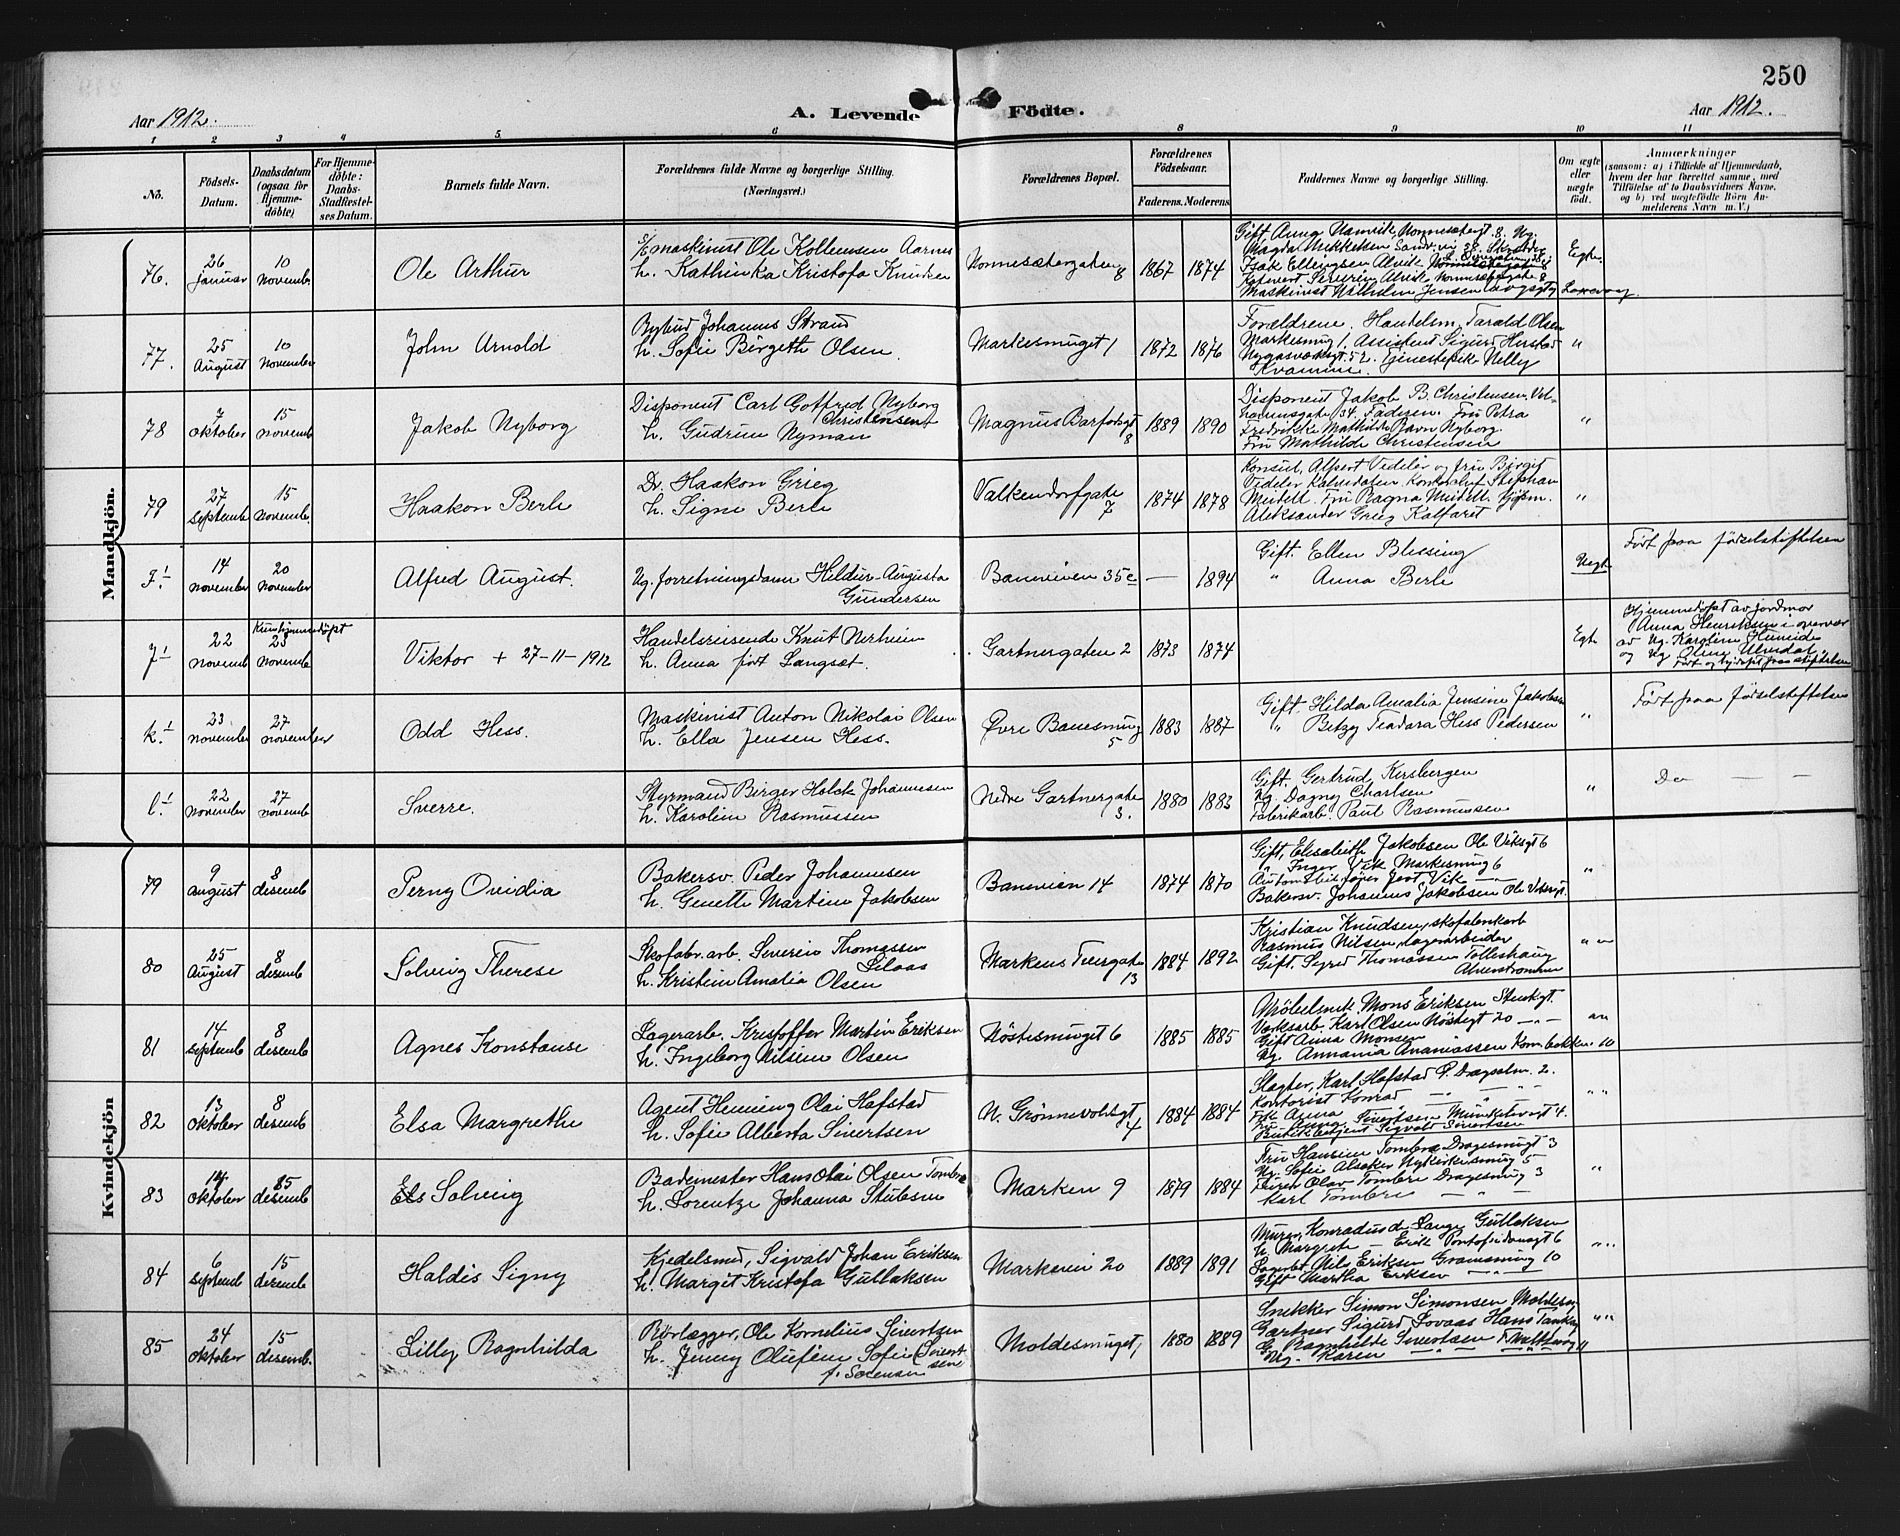 250
Aar 1912.
A. Levende Fødte.
Aar 1912.
1 2 3 4 5 6 8 9 10 11
No.
Födsels-Datum.
Daabsdatum (ogsaa for Hjemme-döbte)
For Hjemme-döbte: Daabs-Stadfestel-ses Datum.
Barnets fulde Navn.
Forældrenes fulde Navne og borgerlige Stilling. (Næringsvei.)
Forældrenes Bopæl.
Forældrenes Födselsaar.
Faderens. Moderens
Faddernes Navne og borgerlige Stilling.
Om ægte eller uægte födt.
Anmærkninger
(saasom: a) i Tilfælde af Hjemmedaab,
hvem der har forrettet samme, med
Tilföielse af to Daabsvidners Navne.
og b) ved uægtefödte Börn An-
melderens Navn m. V.)
Mandkjön.
76. 26 januar 10 November
Ole Arthur
Maskinist Ole Kollensen Aarnes
h. Kathinka Kristofa Knudsen
Nonnesætergaten 8
1867 1874
Isak Ellingsen Alvik
Maskinist Wilhelm Jensen
Egte.
Laxevaag.
77. 25 August 10 November
John Arnold
Bybud Johannes Strand
h. Sofie Birgethe Olsen.
Markesmuget 1
1872 1876
Forældrene. Handelsm. Tarald Olsen
Markesmug 1, Assistent Sigurd Herstad
Nygaardsgt 52. Tjenestepike Nelly
Kvamme.
"
78 7 oktober 15 novemb
Jakob Nyborg
Disponent Carl Gotfred Nyborg
Christensen
h. Gudrun Nyman
Magnus Barfodsgt 8
1889 1890
Disponent Jakob B. Christensen, Vil-
helminsgate 34. Faderen. Fru Petra
Fredrikke Mathilde Ravn Nyborg.
Fru Mathilde Christensen
"
79 27 septemb 15 novemb.
Haakon Berle
Dr. Haakon Grieg
h. Signe Berle
Valkendorfgate 7
1874 1878
Konsul, Alfert Vedeler og fru Birgit
Vedeler Kalvedalen. Konsul Stephan
Mestell. Fru Ragna Mestell
Aleksander Grieg Kalfaret
"
I.1 14 november 20 november
Alfred August.
Ug. forretningsdame Hildur Augusta
Gundersen
Banveien 35c
— 1894
Gift. Ellen Blessing
" Anna Berle
Uegt
Født paa fødselstiftelsen
J1 22 novemb Kun hjemmedøpt 23 novemb
Viktor + 27-11-1912
Handelsreisende Knut Nerheim
h. Anna født Langset.
Gartnergaten 2
1873 1874
Egte
Hjemmedøpt av jordmor
Anna Henriksen i overvær
av Ug. Karoline Hunnide
og Ug Oline Ulvedal,
Født og hj.døpt paa stiftelsen
k.1 23 november 27 november
Odd Hess.
Maskinist Anton Nikolai Olsen
h. Ella Jensen Hess.
Øvre Banesmug 5
1883 1887
Gift. Hilda Amalia Jensine Jakobsen
" Betzy Teadara Hess Pedersen
"
Født paa fødselstiftelsen
l.1 22 november 27 november
Sverre.
Styrmand Birger Holck Johannesen
h. Karoline Rasmussen
Nedre Gartnergate 3.
1880 1883
Gift. Gertrud Kersbergen
Ug. Dagny Charlsen
Fabrikarb. Paul Rasmussen
"
Do — —
Kvindekjön
79 9 august 8 desemb
Perny Ovidia
Bakersv. Peder Johannesen
h. Genette Martine Jakobsen
Banveien 14
1874 1870
Gift, Elisabeth Jakobsen Ole Viksgt 6
" Inger Vik Markesmug 6
Automobilfører Jost Vik
Bakersv. Johannes Jakobsen Ole Viksgt.
"
80 25 August 8 desemb
Solveig Therese
Skofabr. arb. Severin Thomassen
Lilaas
h. Kristine Amalia Olsen
Markens Tvergate 13
1884 1892
Kristian Knudsen, skofabrikarb
Rasmus Nilsen, lagerarbeider
Gift. Sigrd Thomassen Tolleshaug
" "
81 14 septemb 8 desemb
Agnes Konstanse
Lagerarb. Kristoffer Martin Eriksen
h. Ingeborg Nilsine Olsen
Nøstesmuget 6
1885 1885
Møbelsnk. Mons Eriksen Stenkgt.
Verksarb. Karl Olsen Nøstegt 20 — " —
Gift Anna Monsen
Ug. Annania Ananiassen Kom.bakken 10
" "
82 13 oktober 8 desemb
Elsa Margrethe
Agent Henning Olai Hafstad
h. Sofie Alberta Sivertsen
N. Grønnevoldsgt 4
1884 1884
Slagter, Karl Hafstad P. Dragsalm. 2.
Kontorist Konrad — " —
Fru Anna Sivertsen
Butikbetjent Sigvald Sivertsen
" "
83 14 oktober 85 desemb
Els Solveig
Bademester Hans Olai Olsen Tombre
h. Lorentze Johanna Stubsen
Marken 9
1879 1884
Fru Hansine Tombre Dragesmugt 3
Ug. Sofie Alsaker Nykirkesmug 5
Olav Tombre Dragesmug 3
Karl Tombre — " —
"
84 6 septemb 15 desemb
Haldis Signy
Kjedelsmed, Sigvald Johan Eriksen
h. Margit Kristofa Gullaksen
Markeveien 20
1889 1891
Murer, Konradus de Lange Gullaksen
h. Margrete Erik Pontoppidansgt 6
Nils Eriksen Gramsmug 10
Gift Martha Eriksen — " —
" "
85 24 oktober 15 desemb.
Lilly Ragnhilda
Rørlægger, Ole Kornelius Sivertsen
h. Jenny Olufine Sofie (Sivertsen
f. Sørensen
Moldesmuget,
1880 1889
Snekker Simon Simonsen Moldesmug
Gartner Sigurd Lovaas Hans Tanks
G. Ragnhilde Sivertsen
Ug. Karen — " —
" "